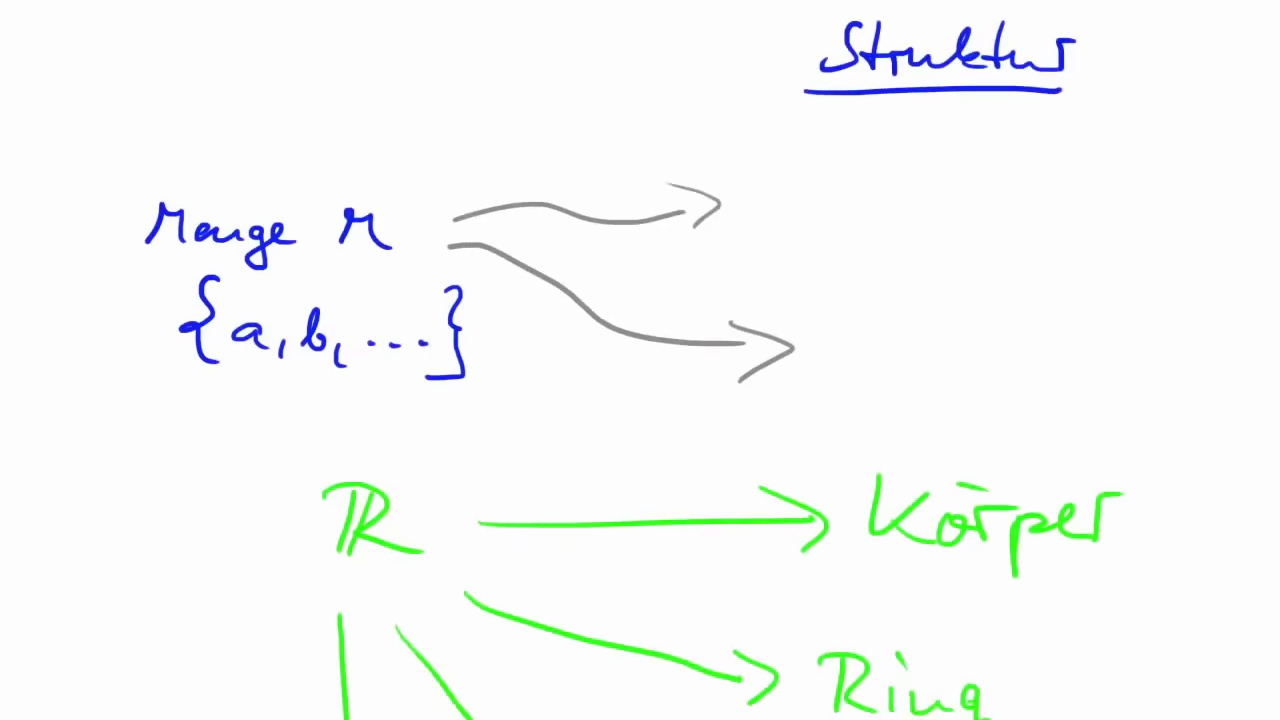 Struktur
Menge M
{a, b, ...}
ℝ Körper
Ring